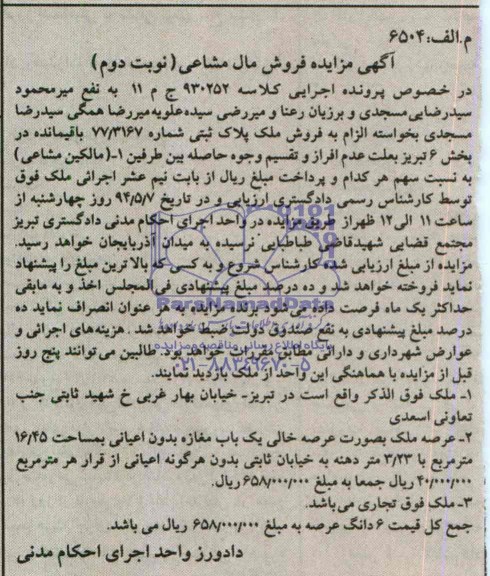 م.الف:۶۵۰۴
آگهی مزایده فروش مال مشاعی (نوبت دوم)
در خصوص پرونده اجرایی کلاسه ۹۳۰۲۵۲ ج م ۱۱ به نفع میرمحمود
سیدرضایی‌مسجدی و برزیان رعنا و میررضی سیده‌علویه‌میررضا همگی سیدرضا
مسجدی بخواسته الزام به فروش ملک پلاک ثبتی شماره ۷۷/۳۱۶۷ باقیمانده در
بخش ۶ تبریز بعلت عدم افراز و تقسیم وجوه حاصله بین طرفین ۱-(مالکین مشاعی)
به نسبت سهم هر کدام و پرداخت مبلغ ریال از بابت نیم عشر اجرائی ملک فوق
توسط کارشناس رسمی دادگستری ارزیابی و در تاریخ ۹۴/۵/۷ روز چهارشنبه از
ساعت ۱۱ الی ۱۲ ظهر از طریق مزایده در واحد اجرای احکام مدنی دادگستری تبریز
مجتمع قضایی شهیدقاضی طباطبایی نرسیده به میدان آذربایجان خواهد رسید.
مزایده از مبلغ ارزیابی شده کارشناس شروع و به کسی که بالاترین مبلغ را پیشنهاد
نماید فروخته خواهد شد و ده درصد مبلغ پیشنهادی فی‌المجلس اخذ و به مابقی
حداکثر یک ماه فرصت داده می‌شود برنده مزایده به هر عنوان انصراف نماید ده
درصد مبلغ پیشنهادی به نفع صندوق دولت ضبط خواهد شد. هزینه‌های اجرائی و
عوارض شهرداری و دارائی مطابق مقررات خواهد بود. طالبین می‌توانند پنج روز
قبل از مزایده با هماهنگی این واحد از ملک بازدید نمایند.
۱- ملک فوق الذکر واقع است در تبریز- خیابان بهار غربی خ شهید ثابتی جنب
تعاونی اسعدی
۲- عرصه ملک بصورت عرصه خالی یک باب مغازه بدون اعیانی بمساحت ۱۶/۴۵
مترمربع با ۳/۲۳ متر دهنه به خیابان ثابتی بدون هرگونه اعیانی از قرار هر مترمربع
۴۰/۰۰۰/۰۰۰ ریال جمعا به مبلغ ۶۵۸/۰۰۰/۰۰۰ ریال.
۳- ملک فوق تجاری می‌باشد.
جمع کل قیمت ۶ دانگ عرصه به مبلغ ۶۵۸/۰۰۰/۰۰۰ ریال می باشد.
دادورز واحد اجرای احکام مدنی
ParsNamadData
پایگاه اطلاع رسانی مناقصه و مزایده
۰۲۱-۸۸۳۴۹۶۷۰-۵